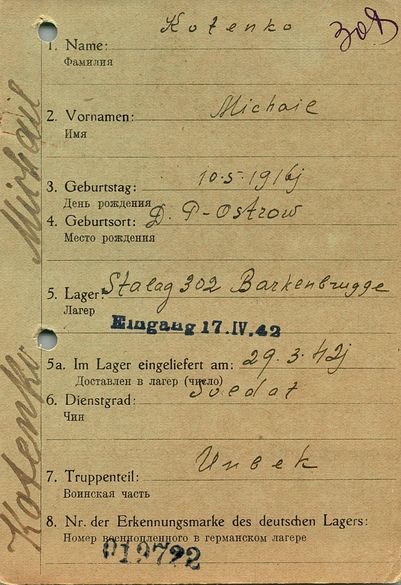 Kotenko
309
1. Name:
Фамилия
Michail
2. Vornamen:
Имя
3. Geburtstag: 10.5.1916j
День рождения
4. Geburtsort: D. P-Ostrow
Место рождения
5. Lager: Stalag 302 Barkenbrugge
Лагер
Eingang 17.IV.42
5a. Im Lager eingeliefert am: 29.3.42j
Доставлен в лагер (число)
6. Dienstgrad: Soldat
Чин
7. Truppenteil: Unbek
Воинская часть
8. Nr. der Erkennungsmarke des deutschen Lagers:
Номер военнопленного в германском лагере
019722
Kotenko Michail